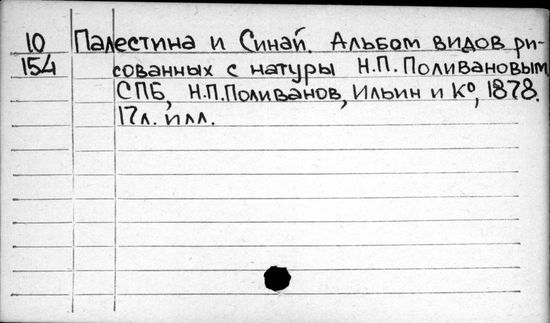 10 Палестина и Синай. Альбом видов ри-
154 сованных с натуры Н.П. Поливановым.
СПБ, Н.П.Поливанов, Ильин и К⁰, 1878.
17л. илл.